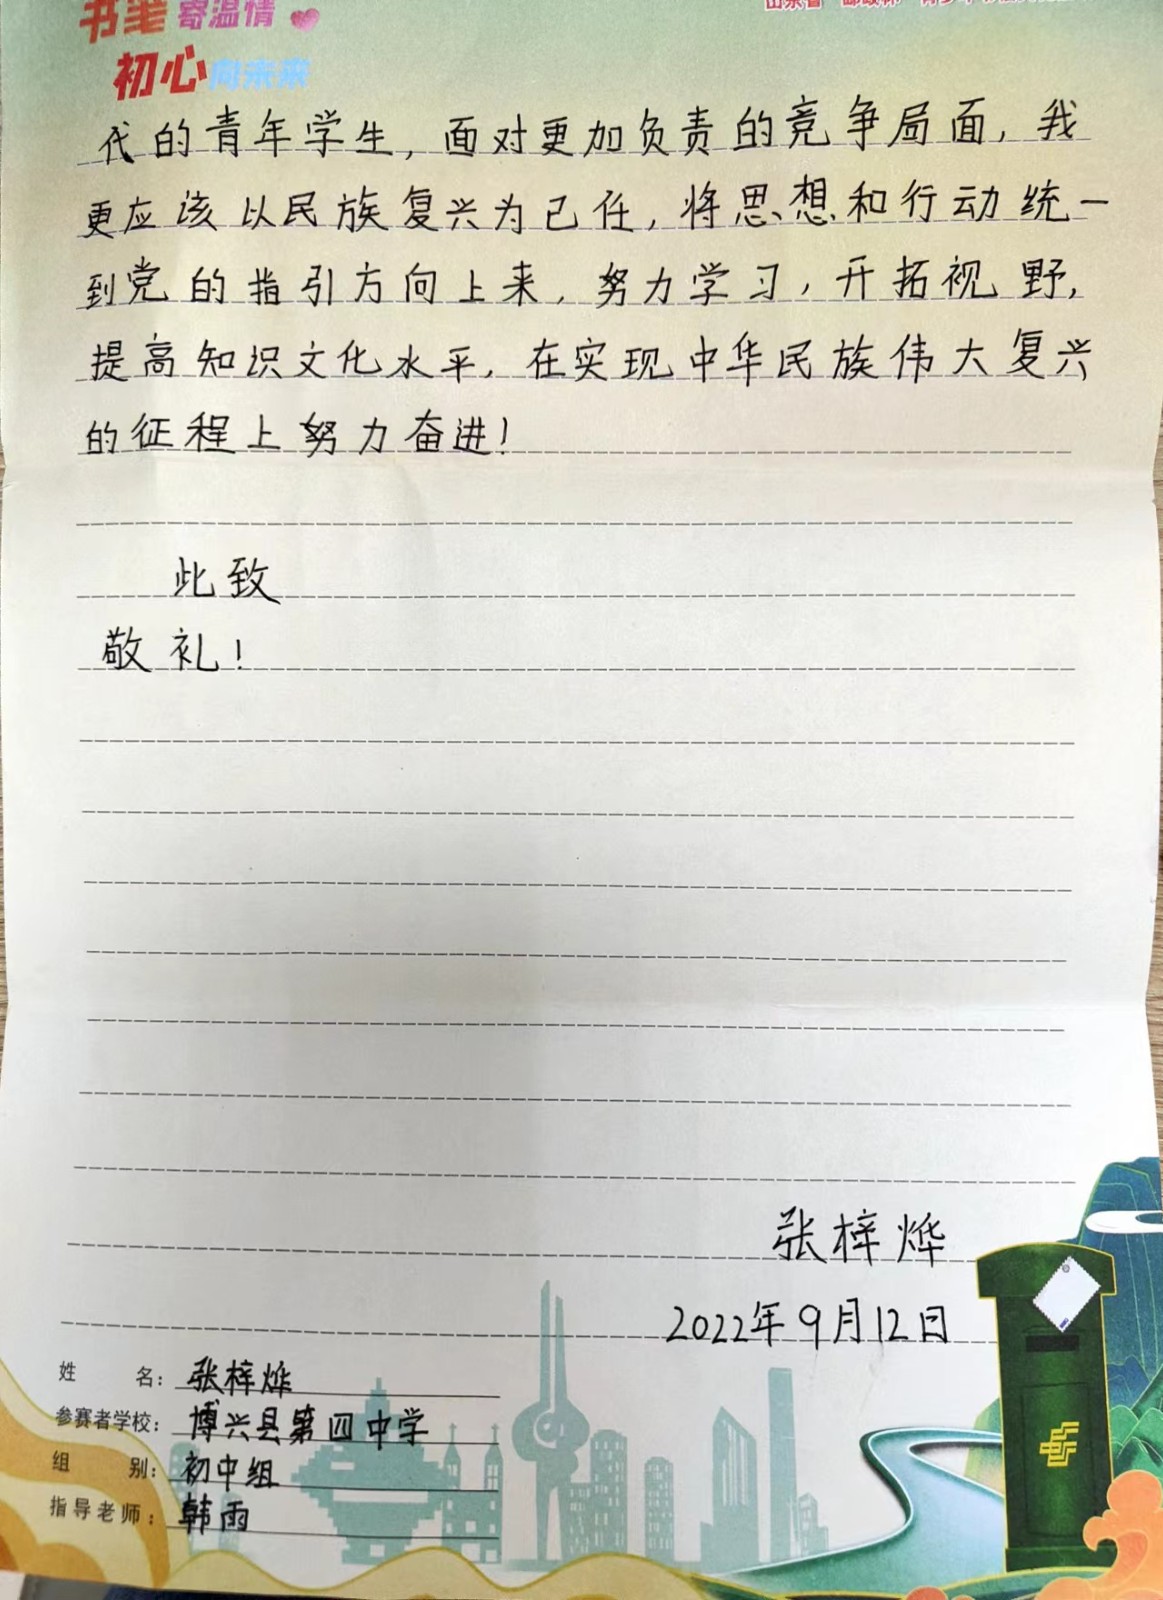 书笔寄温情
初心向未来
代的青年学生，面对更加负责的竞争局面，我
更应该以民族复兴为己任，将思想和行动统一
到党的指引方向上来，努力学习，开拓视野，
提高知识文化水平，在实现中华民族伟大复兴
的征程上努力奋进！
此致
敬礼！
张梓烨
2022年9月12日
姓名：张梓烨
参赛者学校：博兴县第四中学
组别：初中组
指导老师：韩雨